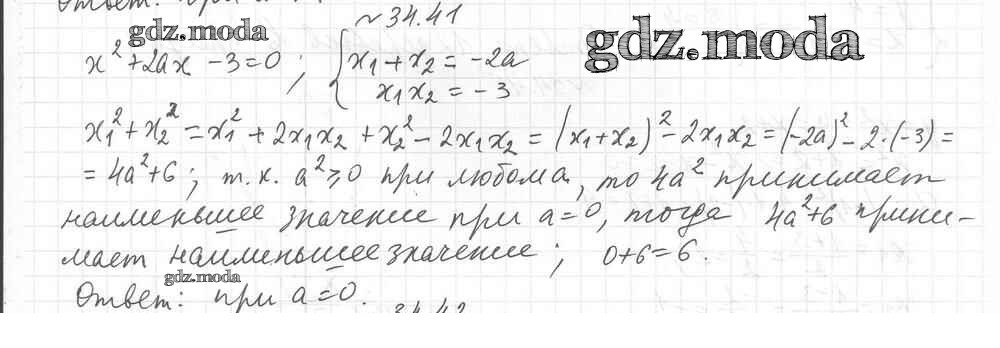 Ответ: при a
№34.41
gdz.moda
gdz.moda
x² + 2ax - 3 = 0 ; { x₁ + x₂ = -2a
x₁x₂ = -3
x₁² + x₂² = x₁² + 2x₁x₂ + x₂² - 2x₁x₂ = (x₁+x₂)² - 2x₁x₂ = (-2a)² - 2·(-3) =
= 4a²+6 ; т.к. a²⩾0 при любом a, то 4a² принимает
наименьшее значение при a=0, тогда 4a²+6 прини-
мает наименьшее значение ; 0+6=6.
gdz.moda
Ответ: при a=0.
34.42